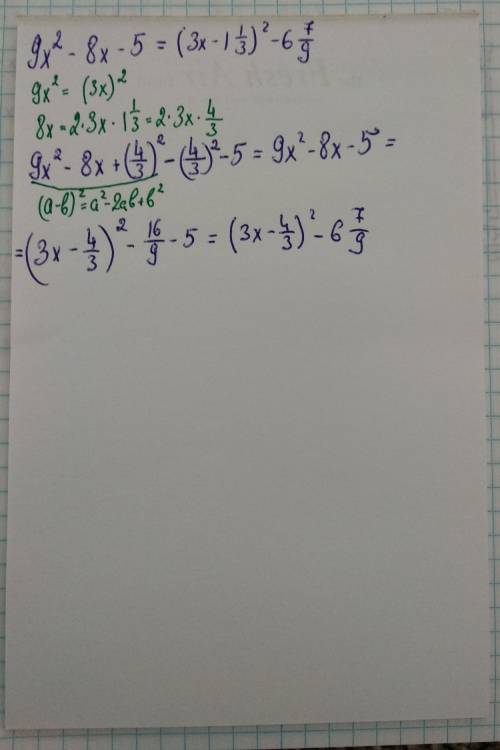 9x² - 8x - 5 = (3x - 1 1/3)² - 6 7/9
9x² = (3x)²
8x = 2·3x·1 1/3 = 2·3x·4/3
9x² - 8x + (4/3)² - (4/3)² - 5 = 9x² - 8x - 5 =
(a-b)² = a² - 2ab + b²
= (3x - 4/3)² - 16/9 - 5 = (3x - 4/3)² - 6 7/9